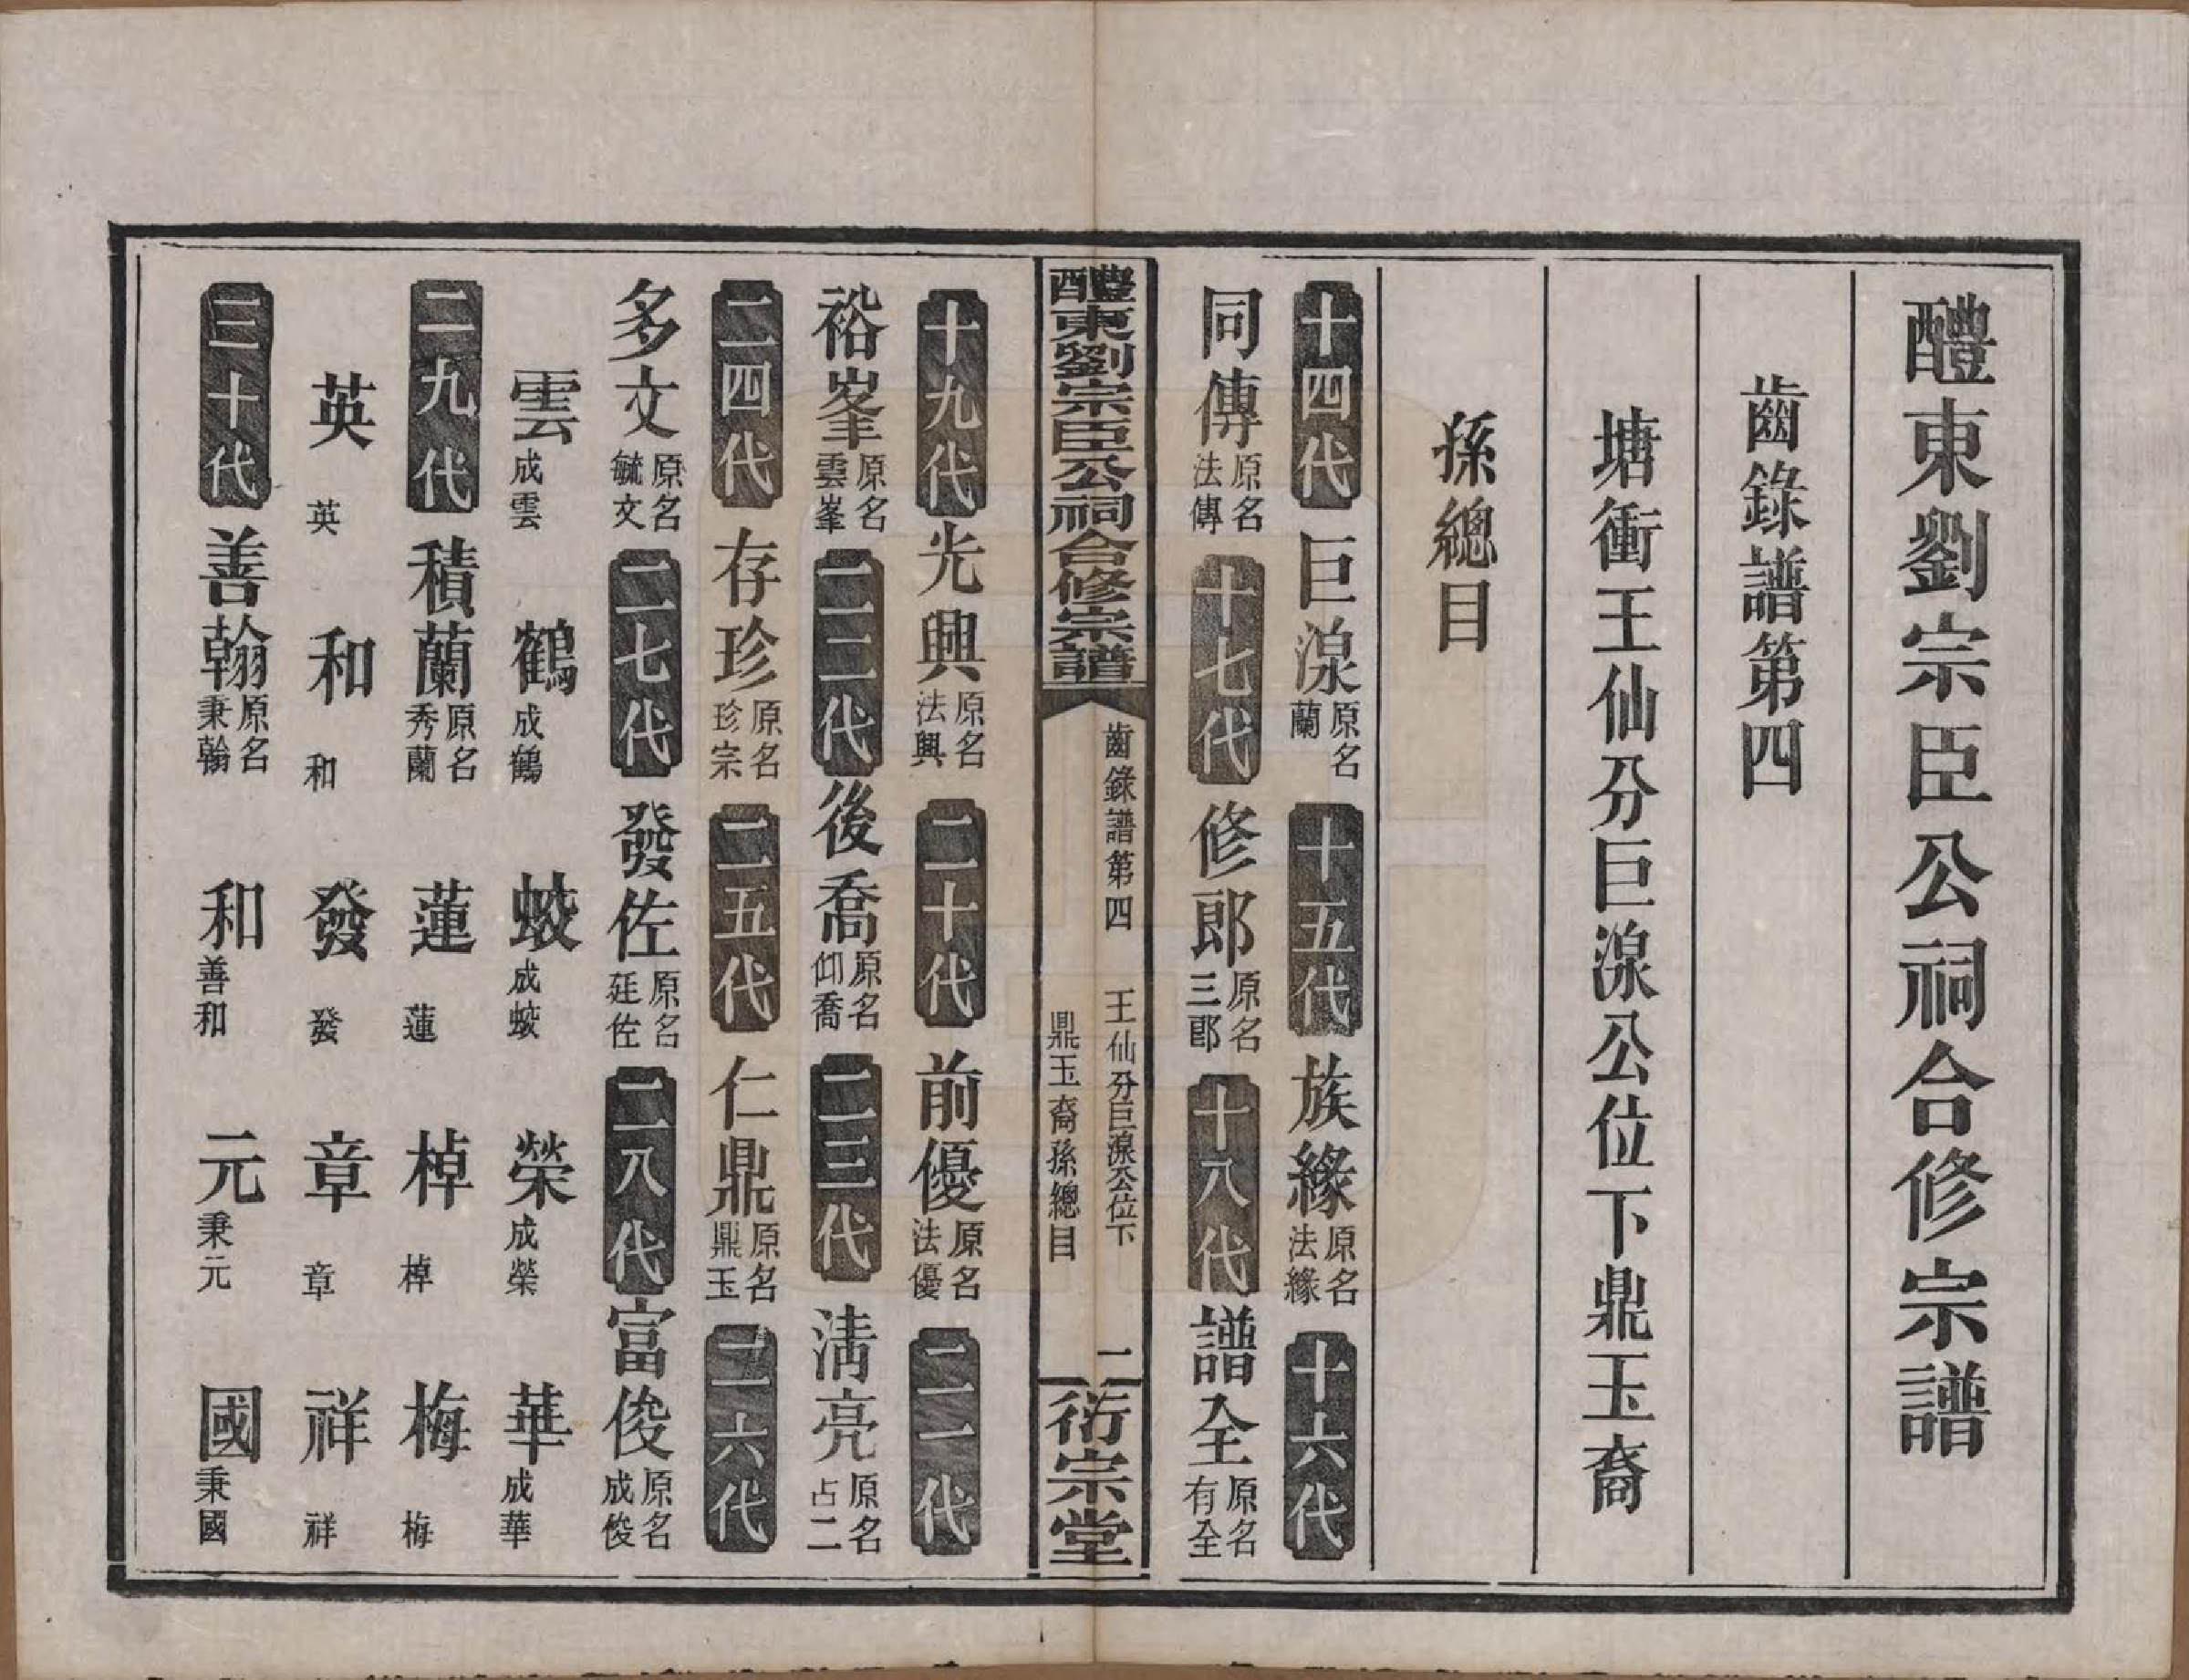 醴東劉宗臣公祠合修宗譜
齒錄譜第四
塘衝王仙分巨湶公位下鼎玉裔
孫總目
十四代 巨湶 原名蘭 十五代 族緣 原名法緣 十六代
同傳 原名法傳 十七代 修郎 原名三郎 十八代 譜全 原名有全
醴東劉宗臣公祠合修宗譜 齒錄譜第四 王仙分巨湶公位下鼎玉裔孫總目 二 衍宗堂
十九代 光興 原名法興 二十代 前優 原名法優 二一代
裕峯 原名雲峯 二二代 後喬 原名仰喬 二三代 淸亮 原名占二
二四代 存珍 原名珍宗 二五代 仁鼎 原名鼎玉 二六代
多文 原名毓文 二七代 發佐 原名廷佐 二八代 富俊 原名成俊
雲 成雲 鶴 成鶴 蛟 成蛟 榮 成榮 華 成華
二九代 積蘭 原名秀蘭 蓮 蓮 棹 棹 梅 梅
英 英 和 和 發 發 章 章 祥 祥
三十代 善翰 原名秉翰 和 善和 元 秉元 國 秉國